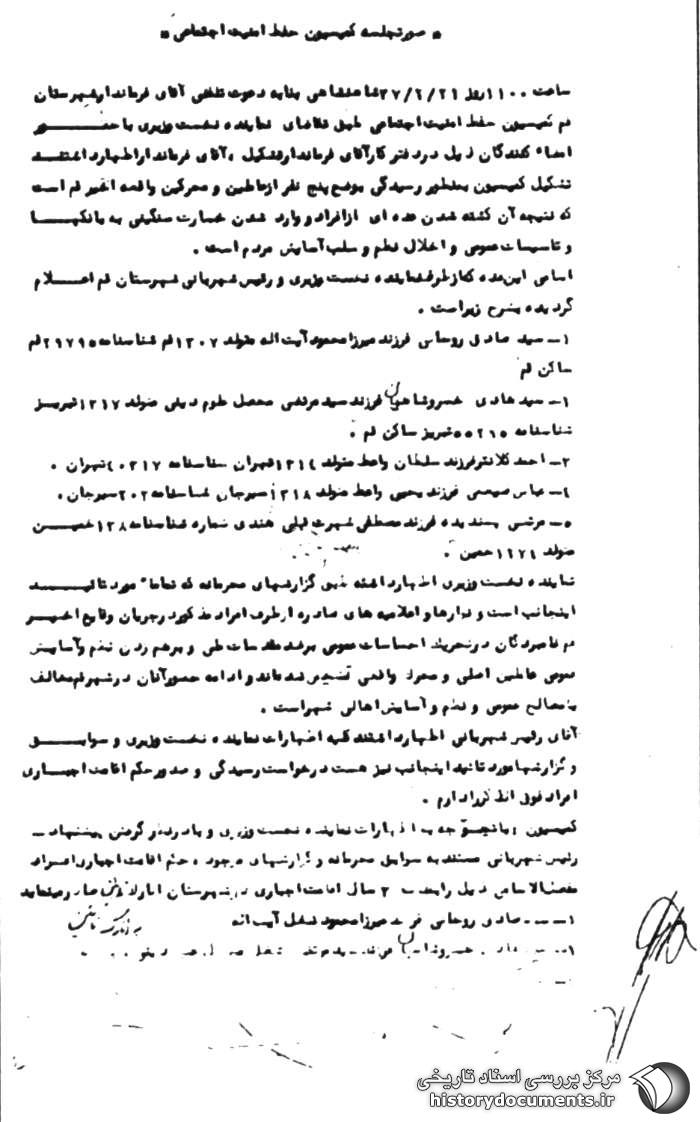 * صورتجلسه کمیسیون حفظ امنیت اجتماعی *
ساعت ۱۱۰۰ روز ۳۷/۲/۲۱ شاهنشاهی بنابه دعوت تلفنی آقای فرماندار شهرستان
قم کمیسیون حفظ امنیت اجتماعی طبق تقاضای نماینده نخست وزیری با حضور
امضاء کنندگان ذیل در دفتر کار آقای فرماندار تشکیل ، آقای فرماندار اظهار داشتند
تشکیل کمیسیون بمنظور رسیدگی بوضع پنج نفر از عاملین و محرکین واقعه اخیر قم است
که نتیجه آن کشته شدن عده ای از افراد و وارد شدن خسارت سنگینی به بانکها
و تاسیسات عمومی و اخلال نظم و سلب آسایش مردم است .
اسامی این عده که از طرف نماینده نخست وزیری و رئیس شهربانی شهرستان قم اعلام
گردیده بشرح زیر است .
۱ـ سید صادق روحانی فرزند میرزا محمود آیت اله متولد ۱۳۰۷ قم شناسنامه ۲۹۷۹۵ قم
ساکن قم
۱ـ سید هادی خسروشاهیان فرزند سید مرتضی محصل علوم دینی متولد ۱۳۱۷ تبریز
شناسنامه ۵۵۲۱۵ تبریز ساکن قم .
۲ـ احمد کلانتر فرزند سلطان واعظ متولد ۱۳۱۴ تهران شناسنامه ۴۰۳۱۷ تهران .
٤ـ عباس فرزند یحیی واعظ متولد ۱۳۱۸ سیرجان شناسنامه ۲۰۲ سیرجان .
۵ـ مرتضی پسندیده فرزند مصطفی شهرت قبلی هندی شماره شناسنامه ۱۳۸ خمین
متولد خمین .
نماینده نخست وزیری اظهار داشته طبق گزارشهای محرمانه که تماما" مورد تائید
اینجانب است و نوارها و اعلامیه های صادره از طرف افراد مذکور در جریان وقایع اخیر
قم نامبردگان در تحریک احساسات عمومی برضد مقدسات ملی و برهم زدن نظم و آسایش
عمومی عاملین اصلی و محرک واقعی تشخیص شده اند و ادامه حضور آنان در شهر قم مخالف
با مصالح عمومی و نظم و آسایش اهالی شهر است .
آقای رئیس شهربانی اظهار داشتند کلیه اظهارات نماینده نخست وزیری و سوابق
و گزارشها مورد تائید اینجانب نیز هست درخواست رسیدگی و صدور حکم اقامت اجباری
افراد فوق الذکر را دارم .
کمیسیون : با توجه به اظهارات نماینده نخست وزیری و با در نظر گرفتن پیشنهاد ـ
رئیس شهربانی مستند به سوابق محرمانه و گزارشهای موجود ، حکم اقامت اجباری افراد
مفصل الاسامی ذیل را بمدت ۳ سال اقامت اجباری در شهرستان صادر مینماید
۱ ـ سید صادق روحانی فرزند میرزا محمود شغل آیت اله
خسروشاهیان فرزند سید مرتضی شغل
مرکز بررسی اسناد تاریخی
historydocuments.ir